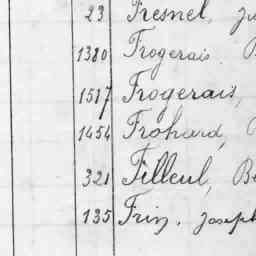 23 Fresnel,
1380 Frogerais.
1517 Frogerais,
1454 Frohard,
321 Filleul, Be
135 Friz. Joseph